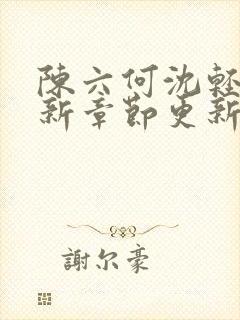 陳六何沈輕
新章節更新
謝尔豪